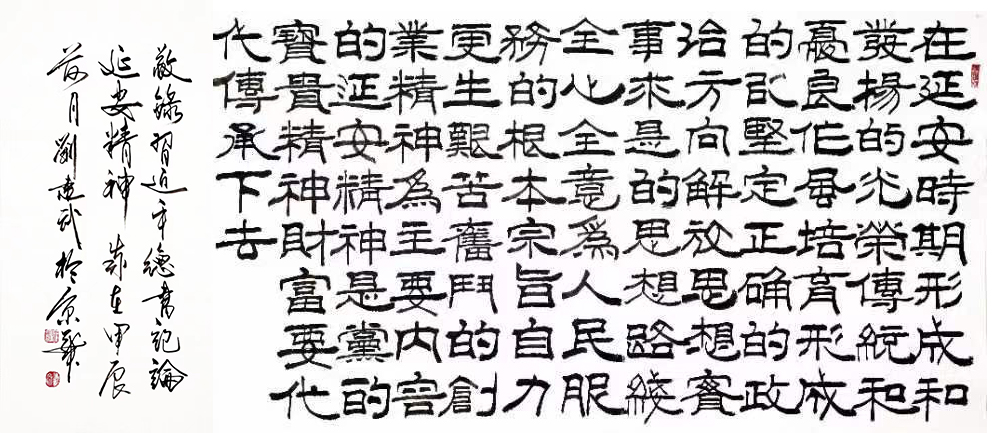 在延安時期形成和
發揚的光榮傳統和
憂良作風培育形成
的以堅定正确的政
治方向解放思想實
事求是的思想路綫
全心全意爲人民服
務的根本宗旨自力
更生艱苦奮鬥的創
業精神為主要内容
的延安精神是黨的
寶貴精神財富要代
代傳承下去
敬錄習近平總書記論
延安精神 歲在甲辰
月劉武於京華